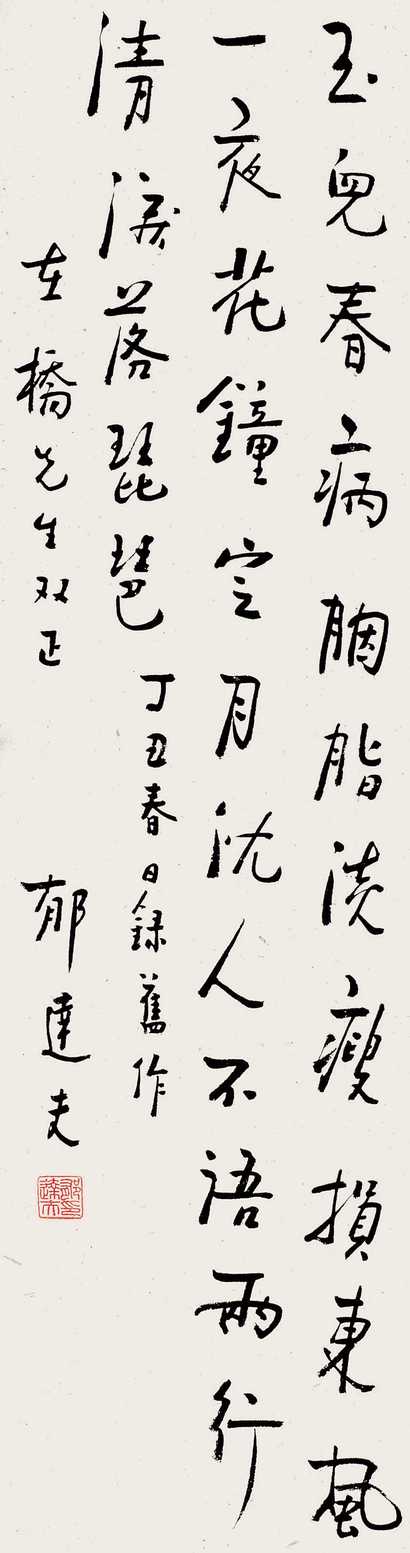 玉兒春病胭脂淡瘦損東風
一夜花鐘定月沈人不語兩行
清淚落琵琶
丁丑春日錄舊作
橋先生双正
郁達夫